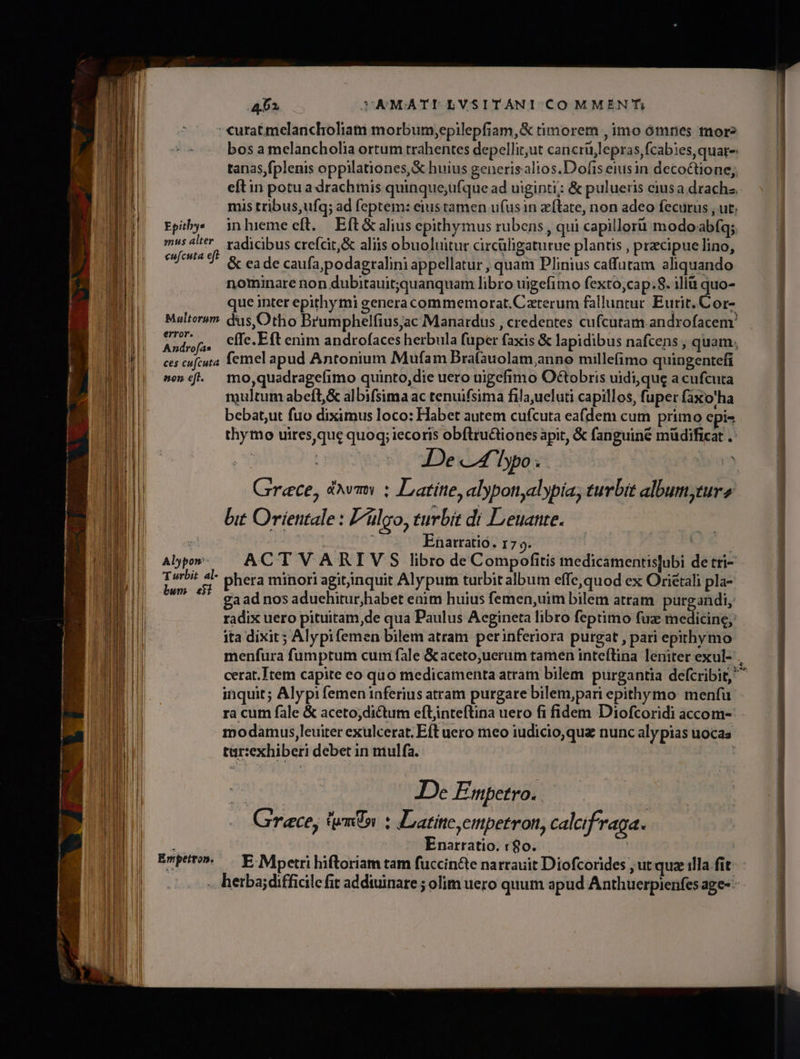 462 AMATI LVSITANI COMMENT.
curat melancholiam morbum,epilepsiam,& timorem , imo omnes mor-
bos a melancholia ortum trahentes depellit,ut cancrũ,lepras,scabies,quar-
tanas,splenis oppilationes,& huius generis alios.Dosis eius in decoctione,
est in potu a drachmis quinque,usque ad uiginti: & pulueris eius a drach.
mis tribus,usq; ad septem: eius tamen usus in æstate, non adeo securus , ut
Epithy- in hieme est. Est & alius epithymus rubens , qui capillorũ modo absq;
mus alter radicibus crescit,& aliis obuoluitur circũligaturue plantis , præcipue lino,
cuscuta est & ea de causa,podagralini appellatur , quam Plinius cassutam aliquando
nominare non dubitauit;quanquam libro uigesimo sexto,cap.8. illũ quo-
que inter epithymi genera commemorat.Cæterum falluntur Eurit. Cor-
Multorum dus,Otho Brumphelsius,ac Manardus , credentes cuscutam androsacem
error. esse.Est enim androsaces herbula super saxis & lapidibus nascens , quam
Androsa-
ces cuscuta semel apud Antonium Musam Brasauolam,anno millesimo quingentesi
non est. mo,quadragesimo quinto,die uero uigesimo Octobris uidi,quę a cuscuta
multum abest,& albissima ac tenuissima fila,ueluti capillos, super saxo ha
bebat,ut suo diximus loco: Habet autem cuscuta easdem cum primo epi-
thymo uires,quę quoq; iecoris obstructiones apit, & sanguinẽ mũdificat .
De Alypo.
Græce, ἄλυπον : Latine, alypon,alypia, turbit album,tur-
bit Orientale : Vulgo, turbit di Leuante.
Enarratio. 179.
Alypon ACTVARIVS libro de Compositis medicamentis,ubi de tri-
Turbit al- phera minori agit,inquit Alypum turbit album esse,quod ex Oriẽtali pla-
bum est ga ad nos aduehitur,habet enim huius semen,uim bilem atram purgandi,
radix uero pituitam,de qua Paulus Aegineta libro septimo suæ medicinę,
ita dixit ; Alypi semen bilem atram per inferiora purgat , pari epithymo
mensura sumptum cum sale & aceto,uerum tamen intestina leniter exul-
cerat.Item capite eo quo medicamenta atram bilem purgantia describit,
inquit; Alypi semen inferius atram purgare bilem,pari epithymo mensu
ra cum sale & aceto,dictum est,intestina uero si fidem Dioscoridi accom-
modamus,leuiter exulcerat. Est uero meo iudicio,quæ nunc alypias uocas
tur:exhiberi debet in mulsa.
De Empetro.
Græce, ἔμπετρον : Latine,empetron, calcifraga.
Enarratio. 180.
Empetron. EMpetri historiam tam succincte narrauit Dioscorides , ut quæ illa sit
herba;difficile sit addiuinare ; olim uero quum apud Anthuerpienses age-